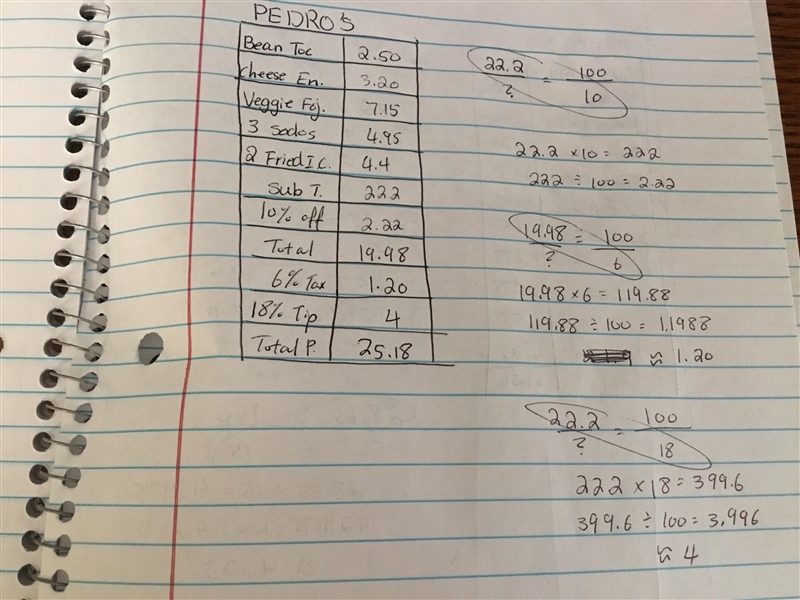 PEDRO'S
Bean Toc 2.50
cheese En. 3.20
Veggie Foj. 7.15
3 sodos 4.95
2 Fried I C. 4.4
Sub T. 222
10% off 2.22
Total 19.98
6% Tax 1.20
18% Tip 4
Total P. 25.18
22.2 / ? = 100 / 10
22.2 x 10 = 222
222 ÷ 100 = 2.22
19.98 / ? = 100 / 6
19.98 x 6 = 119.88
119.88 ÷ 100 = 1.1988
≈ 1.20
22.2 / ? = 100 / 18
222 x 18 = 399.6
399.6 ÷ 100 = 3.996
≈ 4